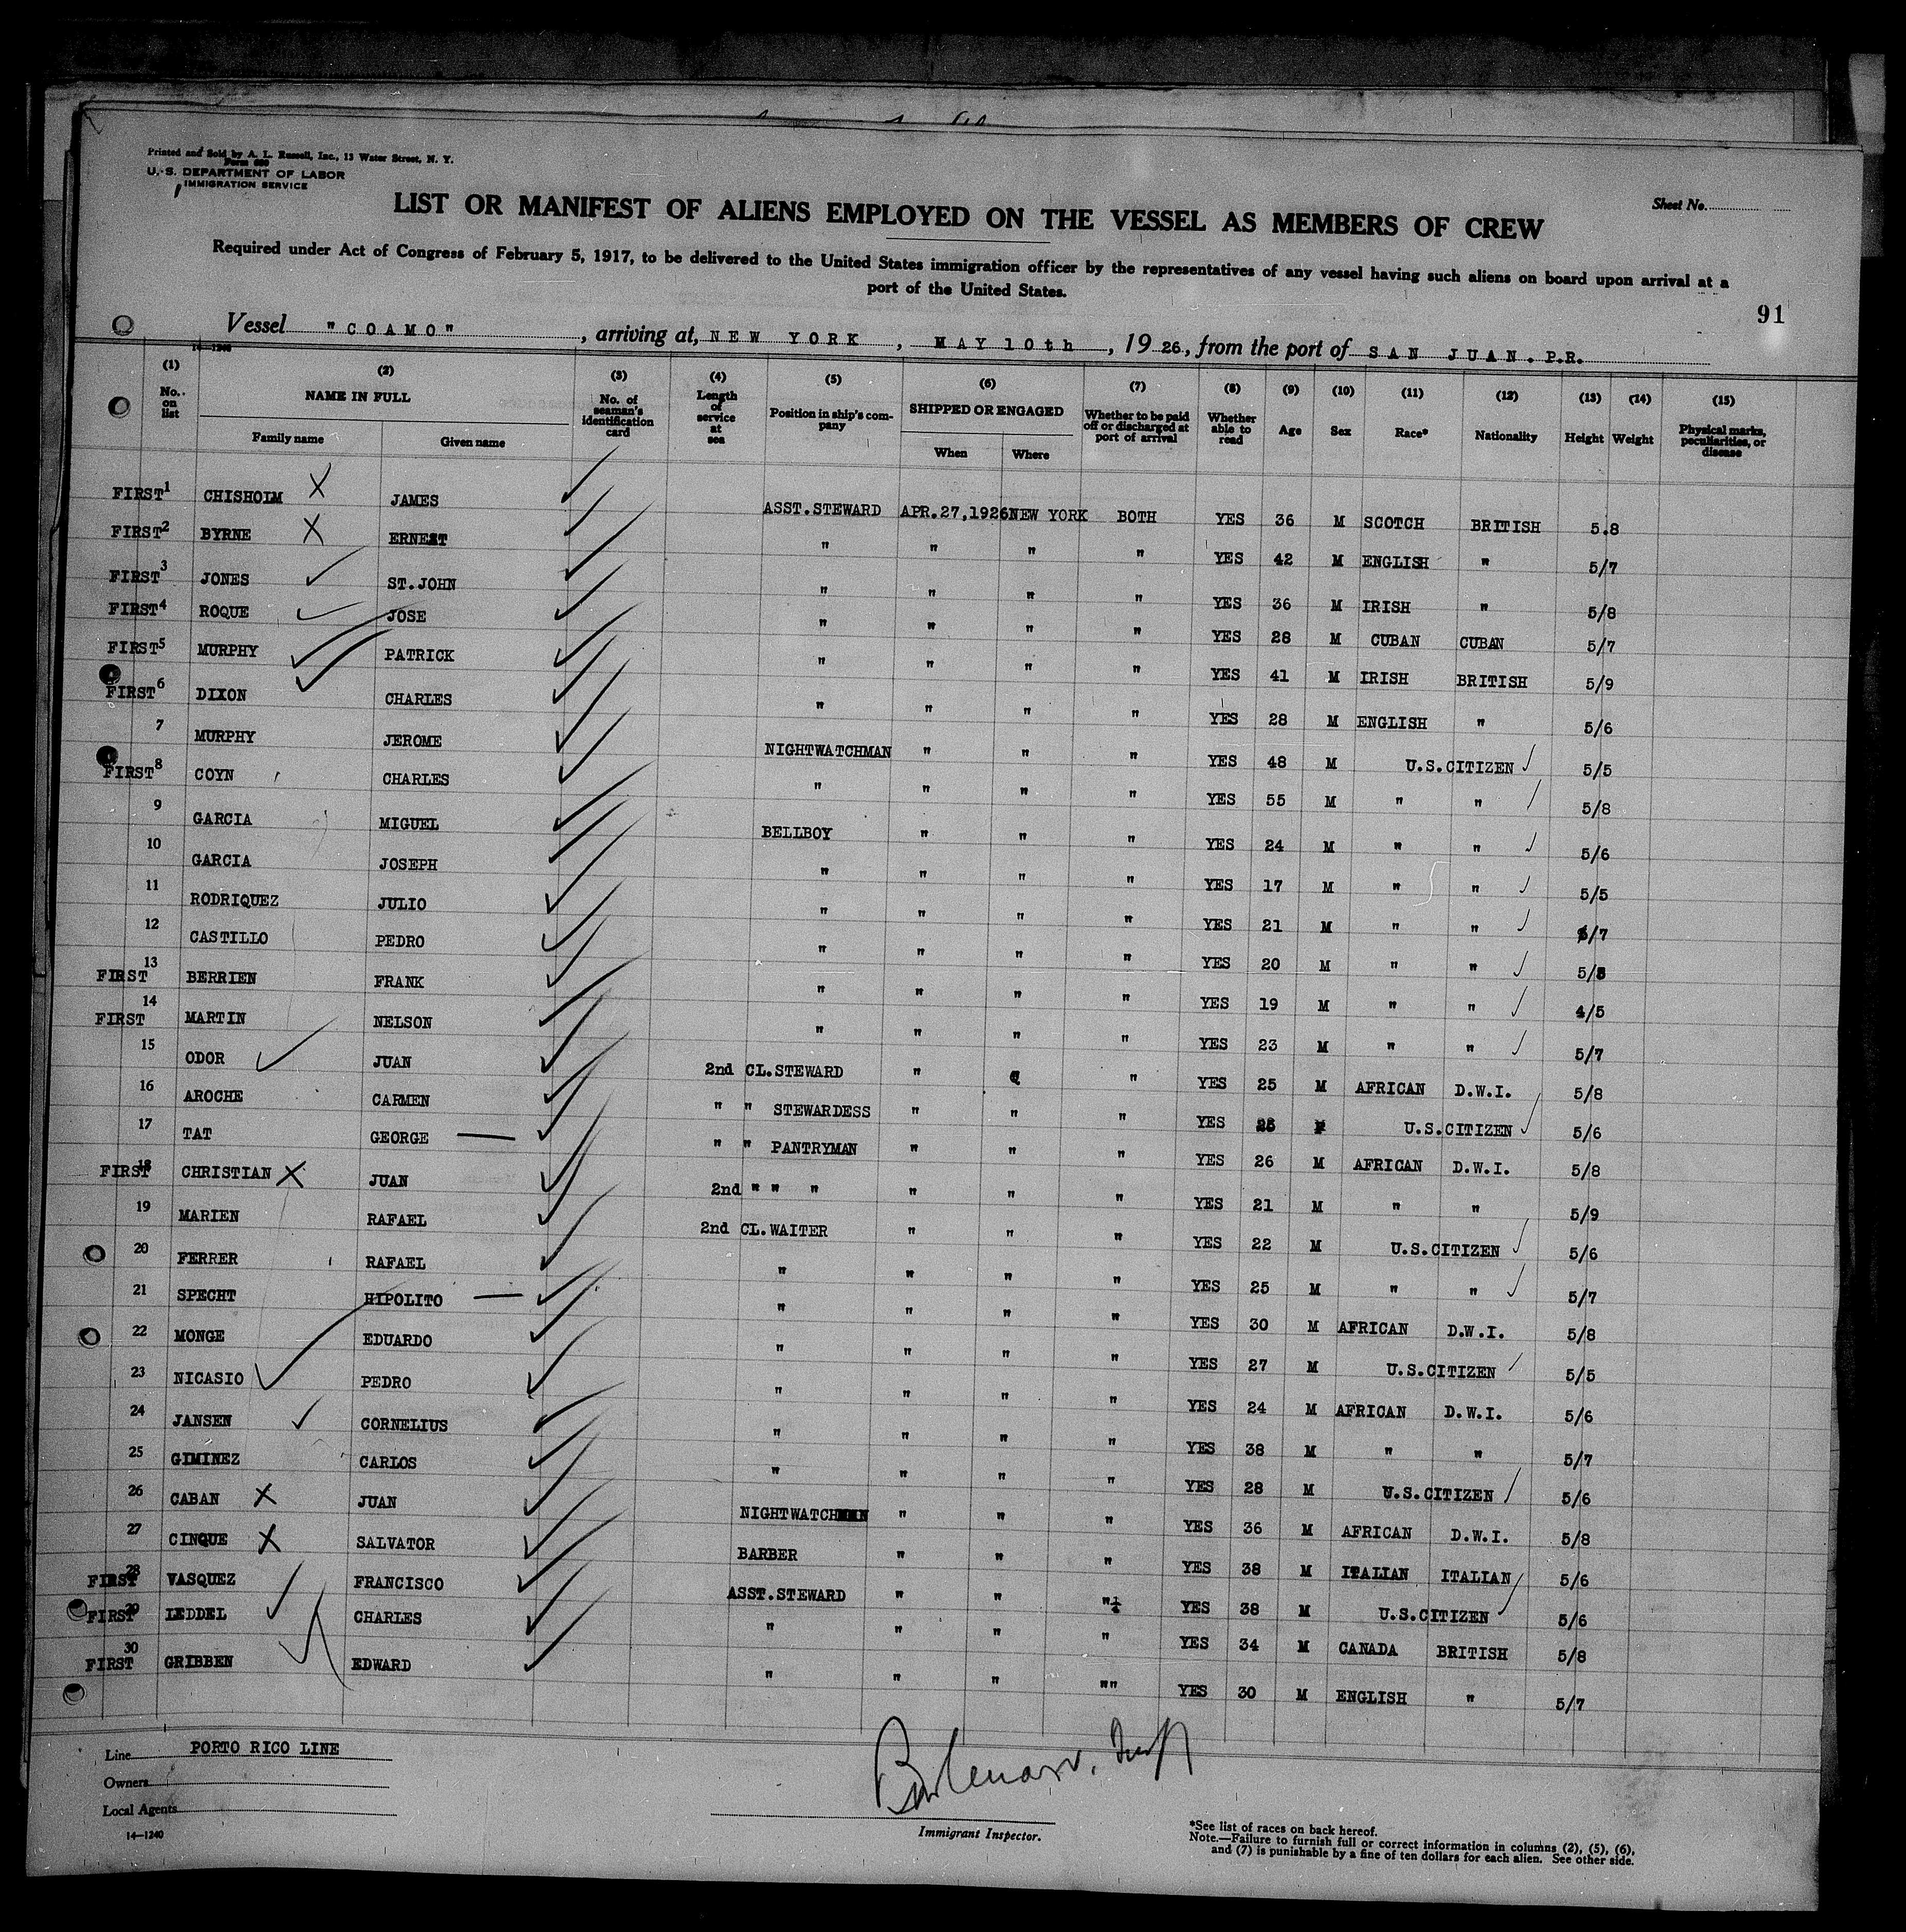 Printed and Sold by A. L. Russell, Inc., 13 Water Street, N. Y.
Form 680
U. S. DEPARTMENT OF LABOR
IMMIGRATION SERVICE
Sheet No.
LIST OR MANIFEST OF ALIENS EMPLOYED ON THE VESSEL AS MEMBERS OF CREW
Required under Act of Congress of February 5, 1917, to be delivered to the United States immigration officer by the representatives of any vessel having such aliens on board upon arrival at a
port of the United States.
91
Vessel "COAMO", arriving at, NEW YORK, MAY 10th, 1926, from the port of SAN JUAN. P.R.
14-1240
(1) (2) (3) (4) (5) (6) (7) (8) (9) (10) (11) (12) (13) (14) (15)
No. on list NAME IN FULL Family name Given name No. of seaman's identification card Length of service at sea Position in ship's company SHIPPED OR ENGAGED When Where Whether to be paid off or discharged at port of arrival Whether able to read Age Sex Race* Nationality Height Weight Physical marks, peculiarities, or disease
FIRST 1 CHISHOLM X JAMES ASST. STEWARD APR. 27, 1926 NEW YORK BOTH YES 36 M SCOTCH BRITISH 5.8
FIRST 2 BYRNE X ERNEST " " " " YES 42 M ENGLISH " 5/7
FIRST 3 JONES ST. JOHN " " " " YES 36 M IRISH " 5/8
FIRST 4 ROQUE JOSE " " " " YES 28 M CUBAN CUBAN 5/7
FIRST 5 MURPHY PATRICK " " " " YES 41 M IRISH BRITISH 5/9
FIRST 6 DIXON CHARLES " " " " YES 28 M ENGLISH " 5/6
7 MURPHY JEROME NIGHTWATCHMAN " " " YES 48 M U.S. CITIZEN 5/5
FIRST 8 COYN CHARLES " " " " YES 55 M " " 5/8
9 GARCIA MIGUEL BELLBOY " " " YES 24 M " " 5/6
10 GARCIA JOSEPH " " " " YES 17 M " " 5/5
11 RODRIQUEZ JULIO " " " " YES 21 M " " 5/7
12 CASTILLO PEDRO " " " " YES 20 M " " 5/8
FIRST 13 BERRIEN FRANK " " " " YES 19 M " " 4/5
FIRST 14 MARTIN NELSON " " " " YES 23 M " " 5/7
15 ODOR JUAN 2nd CL. STEWARD " " " YES 25 M AFRICAN D.W.I. 5/8
16 AROCHE CARMEN " " STEWARDESS " " " YES 25 F U.S. CITIZEN 5/6
17 TAT GEORGE " " PANTRYMAN " " " YES 26 M AFRICAN D.W.I. 5/8
FIRST 18 CHRISTIAN X JUAN 2nd " " " " " " YES 21 M " " 5/9
19 MARIEN RAFAEL 2nd CL. WAITER " " " YES 22 M U.S. CITIZEN 5/6
20 FERRER RAFAEL " " " " YES 25 M " " 5/7
21 SPECHT HIPOLITO " " " " YES 30 M AFRICAN D.W.I. 5/8
22 MONGE EDUARDO " " " " YES 27 M U.S. CITIZEN 5/5
23 NICASIO PEDRO " " " " YES 24 M AFRICAN D.W.I. 5/6
24 JANSEN CORNELIUS " " " " YES 38 M " " 5/7
25 GIMINEZ CARLOS " " " " YES 28 M U.S. CITIZEN 5/6
26 CABAN X JUAN NIGHTWATCHMAN " " " YES 36 M AFRICAN D.W.I. 5/8
27 CINQUE X SALVATOR BARBER " " " YES 38 M ITALIAN ITALIAN 5/6
FIRST 28 VASQUEZ FRANCISCO ASST. STEWARD " " " YES 38 M U.S. CITIZEN 5/6
FIRST 29 LEDDEL CHARLES " " " " YES 34 M CANADA BRITISH 5/8
FIRST 30 GRIBBEN EDWARD " " " "" YES 30 M ENGLISH " 5/7
Line PORTO RICO LINE
Owners
Local Agents
14-1240
Immigrant Inspector.
*See list of races on back hereof.
Note.—Failure to furnish full or correct information in columns (2), (5), (6),
and (7) is punishable by a fine of ten dollars for each alien. See other side.